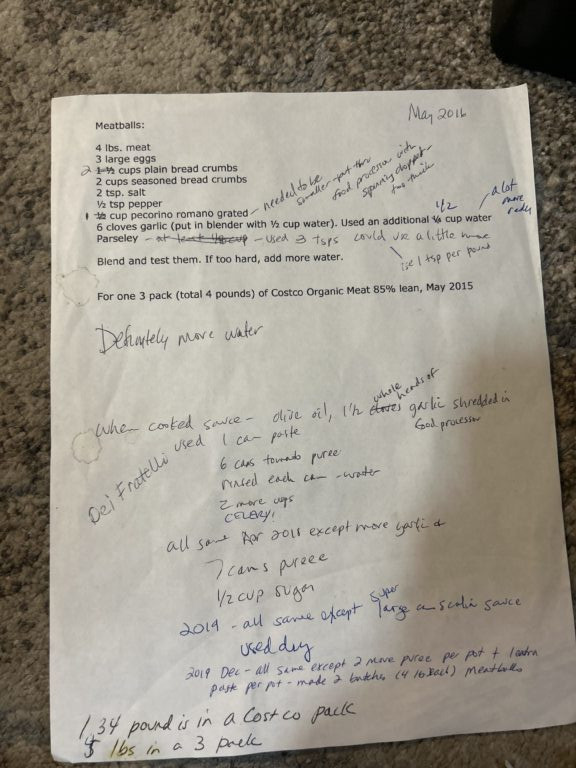 May 2016
Meatballs:
4 lbs. meat
3 large eggs
2 1 ½ cups plain bread crumbs
2 cups seasoned bread crumbs
2 tsp. salt
½ tsp pepper
1 ½ cup pecorino romano grated - needed to be
smaller - put thru
food processor with
spinning chopper
too thick
6 cloves garlic (put in blender with ½ cup water). Used an additional ¼ cup water
1/2
a lot
more
Parseley - at least 1/2 cup - used 3 tsps could use a little more
use 1 tsp per pound
Blend and test them. If too hard, add more water.
For one 3 pack (total 4 pounds) of Costco Organic Meat 85% lean, May 2015
Definitely more water
When cooked sauce - olive oil, 1 1/2 cloves whole heads of garlic shredded in
food processor
Dei Fratelli
used 1 can paste
6 cans tomato puree
rinsed each can - water
2 more
CELERY!
all same Apr 2018 except more garlic &
7 cans puree
1/2 cup sugar
2019 - all same except super large can sauce
used dry
2019 Dec - all same except 2 more puree per pot + 1 extra
paste per pot - made 2 batches (4 lb each) meatballs
1.34 pound is in a Costco pack
lbs in a 3 pack